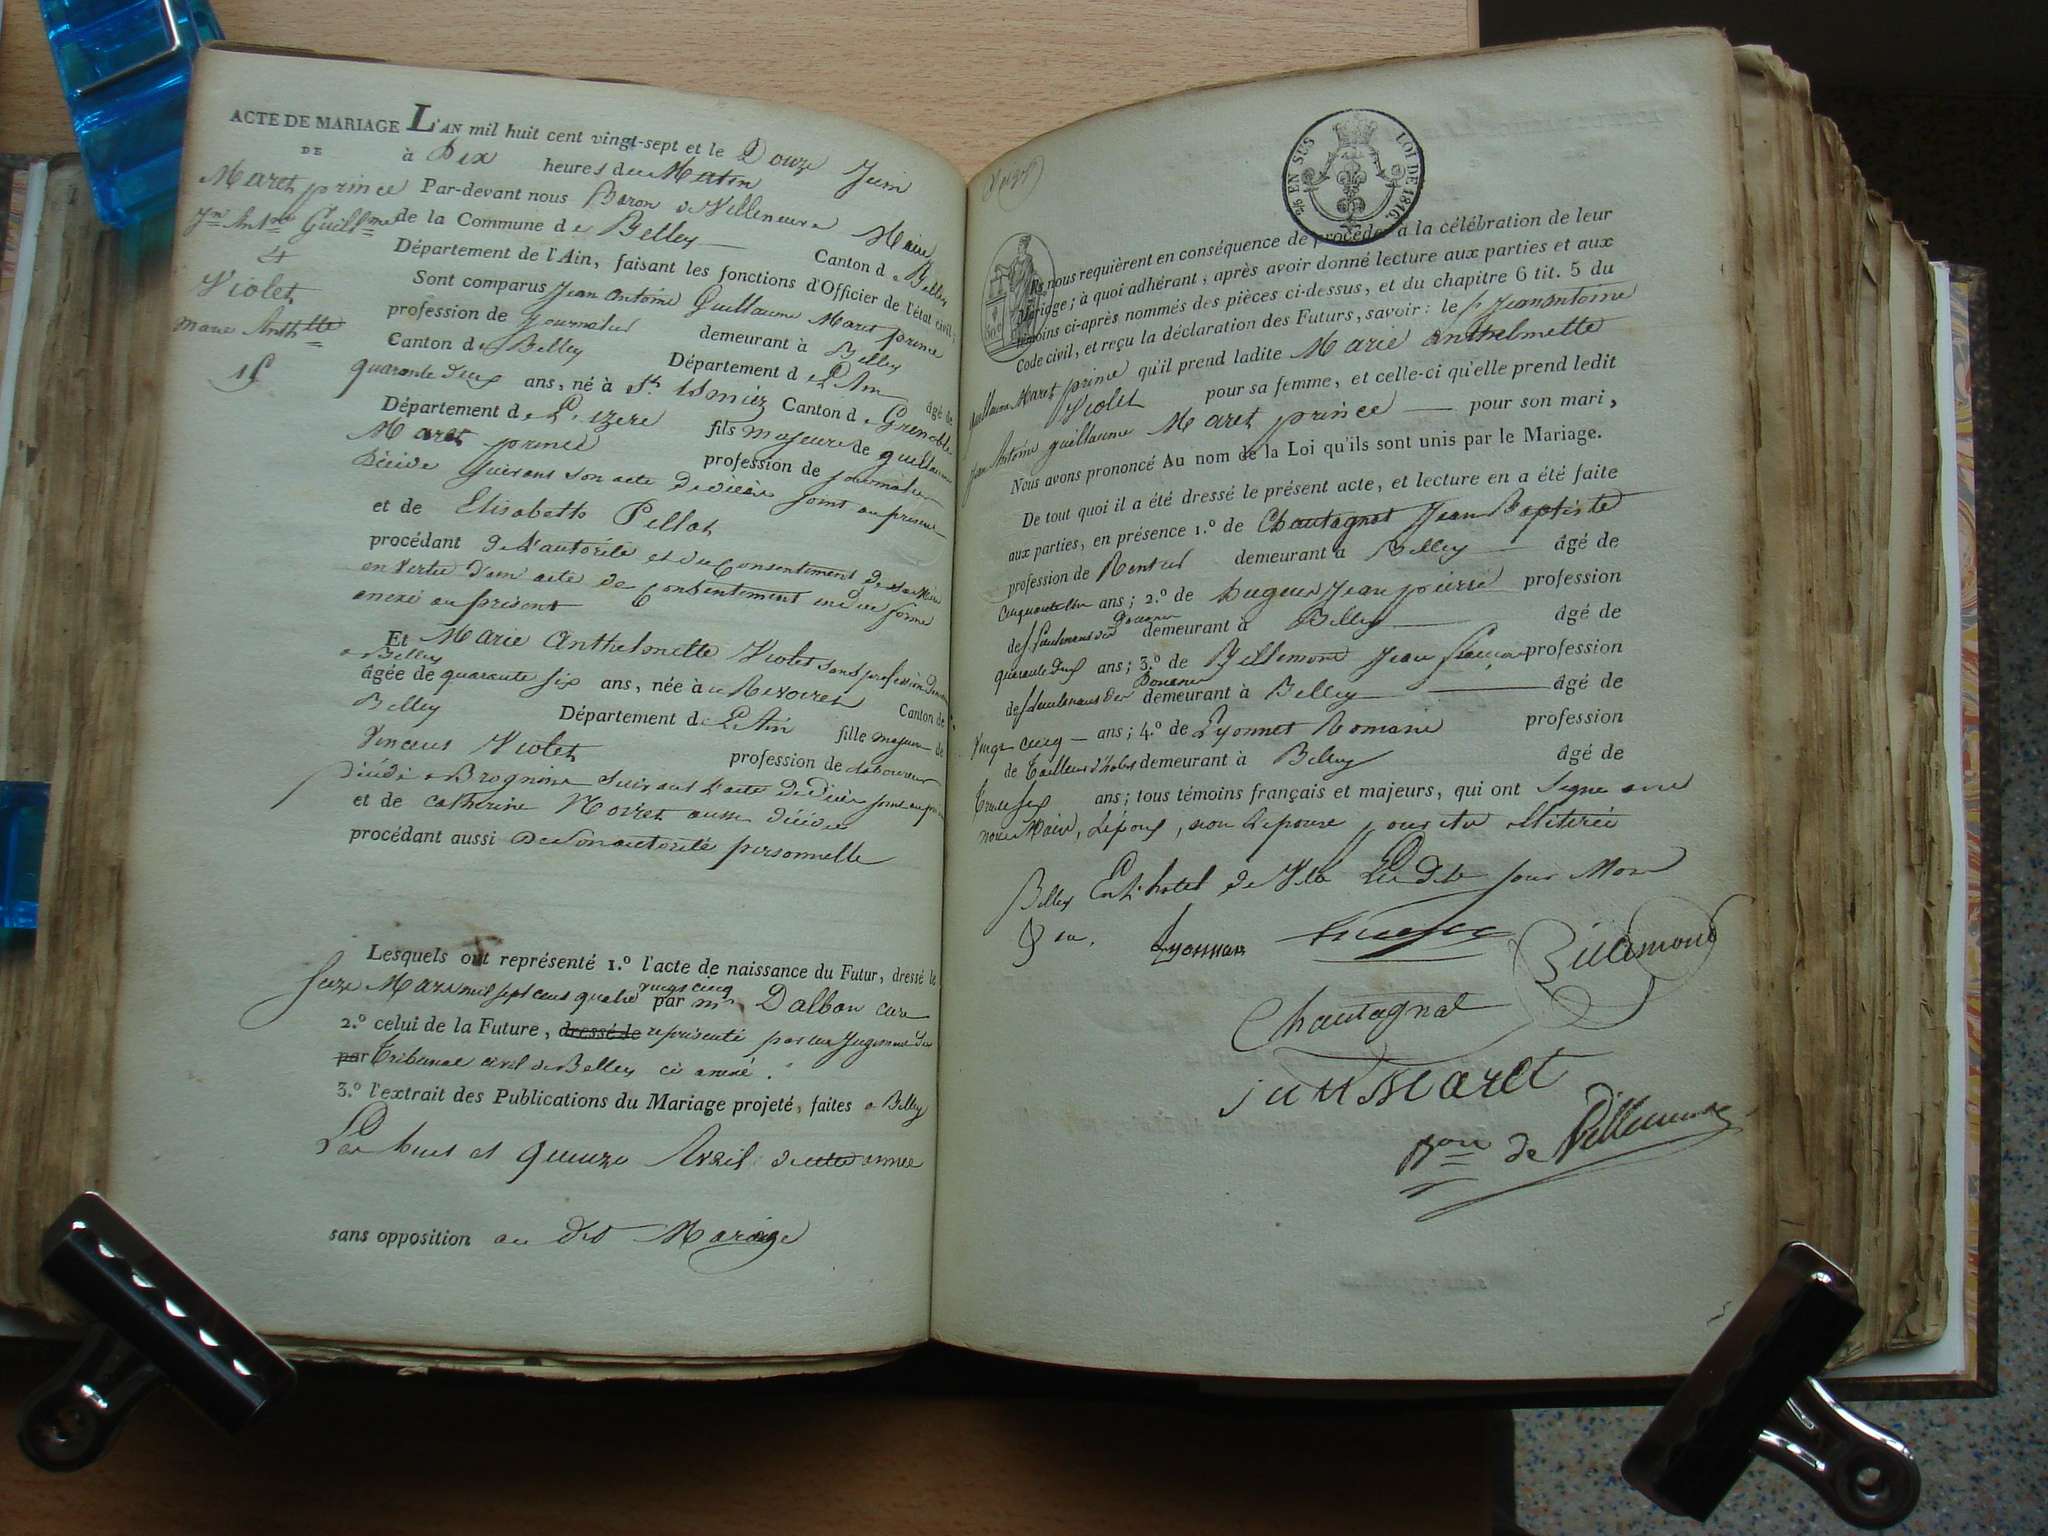 ACTE DE MARIAGE L'AN mil huit cent vingt-sept et le Douze Juin
DE
à Dix heures du Matin
Maret prince
Jn Antne Guillme
&
Violet
Marie Anthtte
15
Par-devant nous Baron de Villeneuve Maire
de la Commune de Belley Canton de Belley
Département de l'Ain, faisant les fonctions d'Officier de l'état civil;
Sont comparus Jean Antoine Guillaume Maret prince
profession de Journalier demeurant à Belley
Canton de Belley Département de L'Ain âgé de
quarante deux ans, né à St. Ismier Canton de Grenoble
Département de L'izere fils majeur de guillaume
Maret prince profession de journalier
Décédé suivant son acte de décès joint au présent
et de Elisabeth Pellat
procédant de l'autorité et du Consentement de sa Mère
en vertu d'un acte de Consentement en due forme
anexé au présent
Et Marie Anthelmette Violet sans profession
a Belley
âgée de quarante six ans, née à Canton de
Belley Département de L'Ain fille majeure de
Vincent Violet profession de laboureur
Décédé a Brognine suivant l'acte de décès joint au
et de Catherine Moiret aussi décédée
procédant aussi De son autorité personnelle
Lesquels ont représenté 1.º l'acte de naissance du Futur, dressé le
Seize Mars mil sept cent quatre vingt cinq par mr Dalbon curé
2.º celui de la Future, dressé de représenté par un Jugement du
par Tribunal civil de Belley ci anexé.
3.º l'extrait des Publications du Mariage projeté, faites a Belley
Les huit et quinze Avril de cette année
sans opposition au dit Mariage
2/6 EN SUS LOI DE 1816.
Ils nous requièrent en conséquence de procéder à la célébration de leur
Mariage; à quoi adhérant, après avoir donné lecture aux parties et aux
témoins ci-après nommés des pièces ci-dessus, et du chapitre 6 tit. 5 du
Code civil, et reçu la déclaration des Futurs, savoir: le Jean Antoine
Guillaume Maret prince qu'il prend ladite Marie Anthelmette
Violet pour sa femme, et celle-ci qu'elle prend ledit
Jean Antoine guillaume Maret prince pour son mari,
Nous avons prononcé Au nom de la Loi qu'ils sont unis par le Mariage.
De tout quoi il a été dressé le présent acte, et lecture en a été faite
aux parties, en présence 1.º de Chautagnat Jean Baptiste
profession de Rentier demeurant à Belley âgé de
ans; 2.º de hugues Jean pierre profession
de Lieutenant des Douanes demeurant à Belley âgé de
quarante deux ans; 3.º de Billemont Jean profession
de Lieutenant des Douanes demeurant à Belley âgé de
Vingt cinq ans; 4.º de Lyonnet Romain profession
de tailleur d'habits demeurant à Belley âgé de
trente six ans; tous témoins français et majeurs, qui ont signé avec
nous Maire, L'époux, non L'épouse pour être illitérée
Belley En L'hotel de Ville Les dits jour Mois
& an. Lyonnet Billemont
Chautagnat
Maret
Bon de Villeneuve